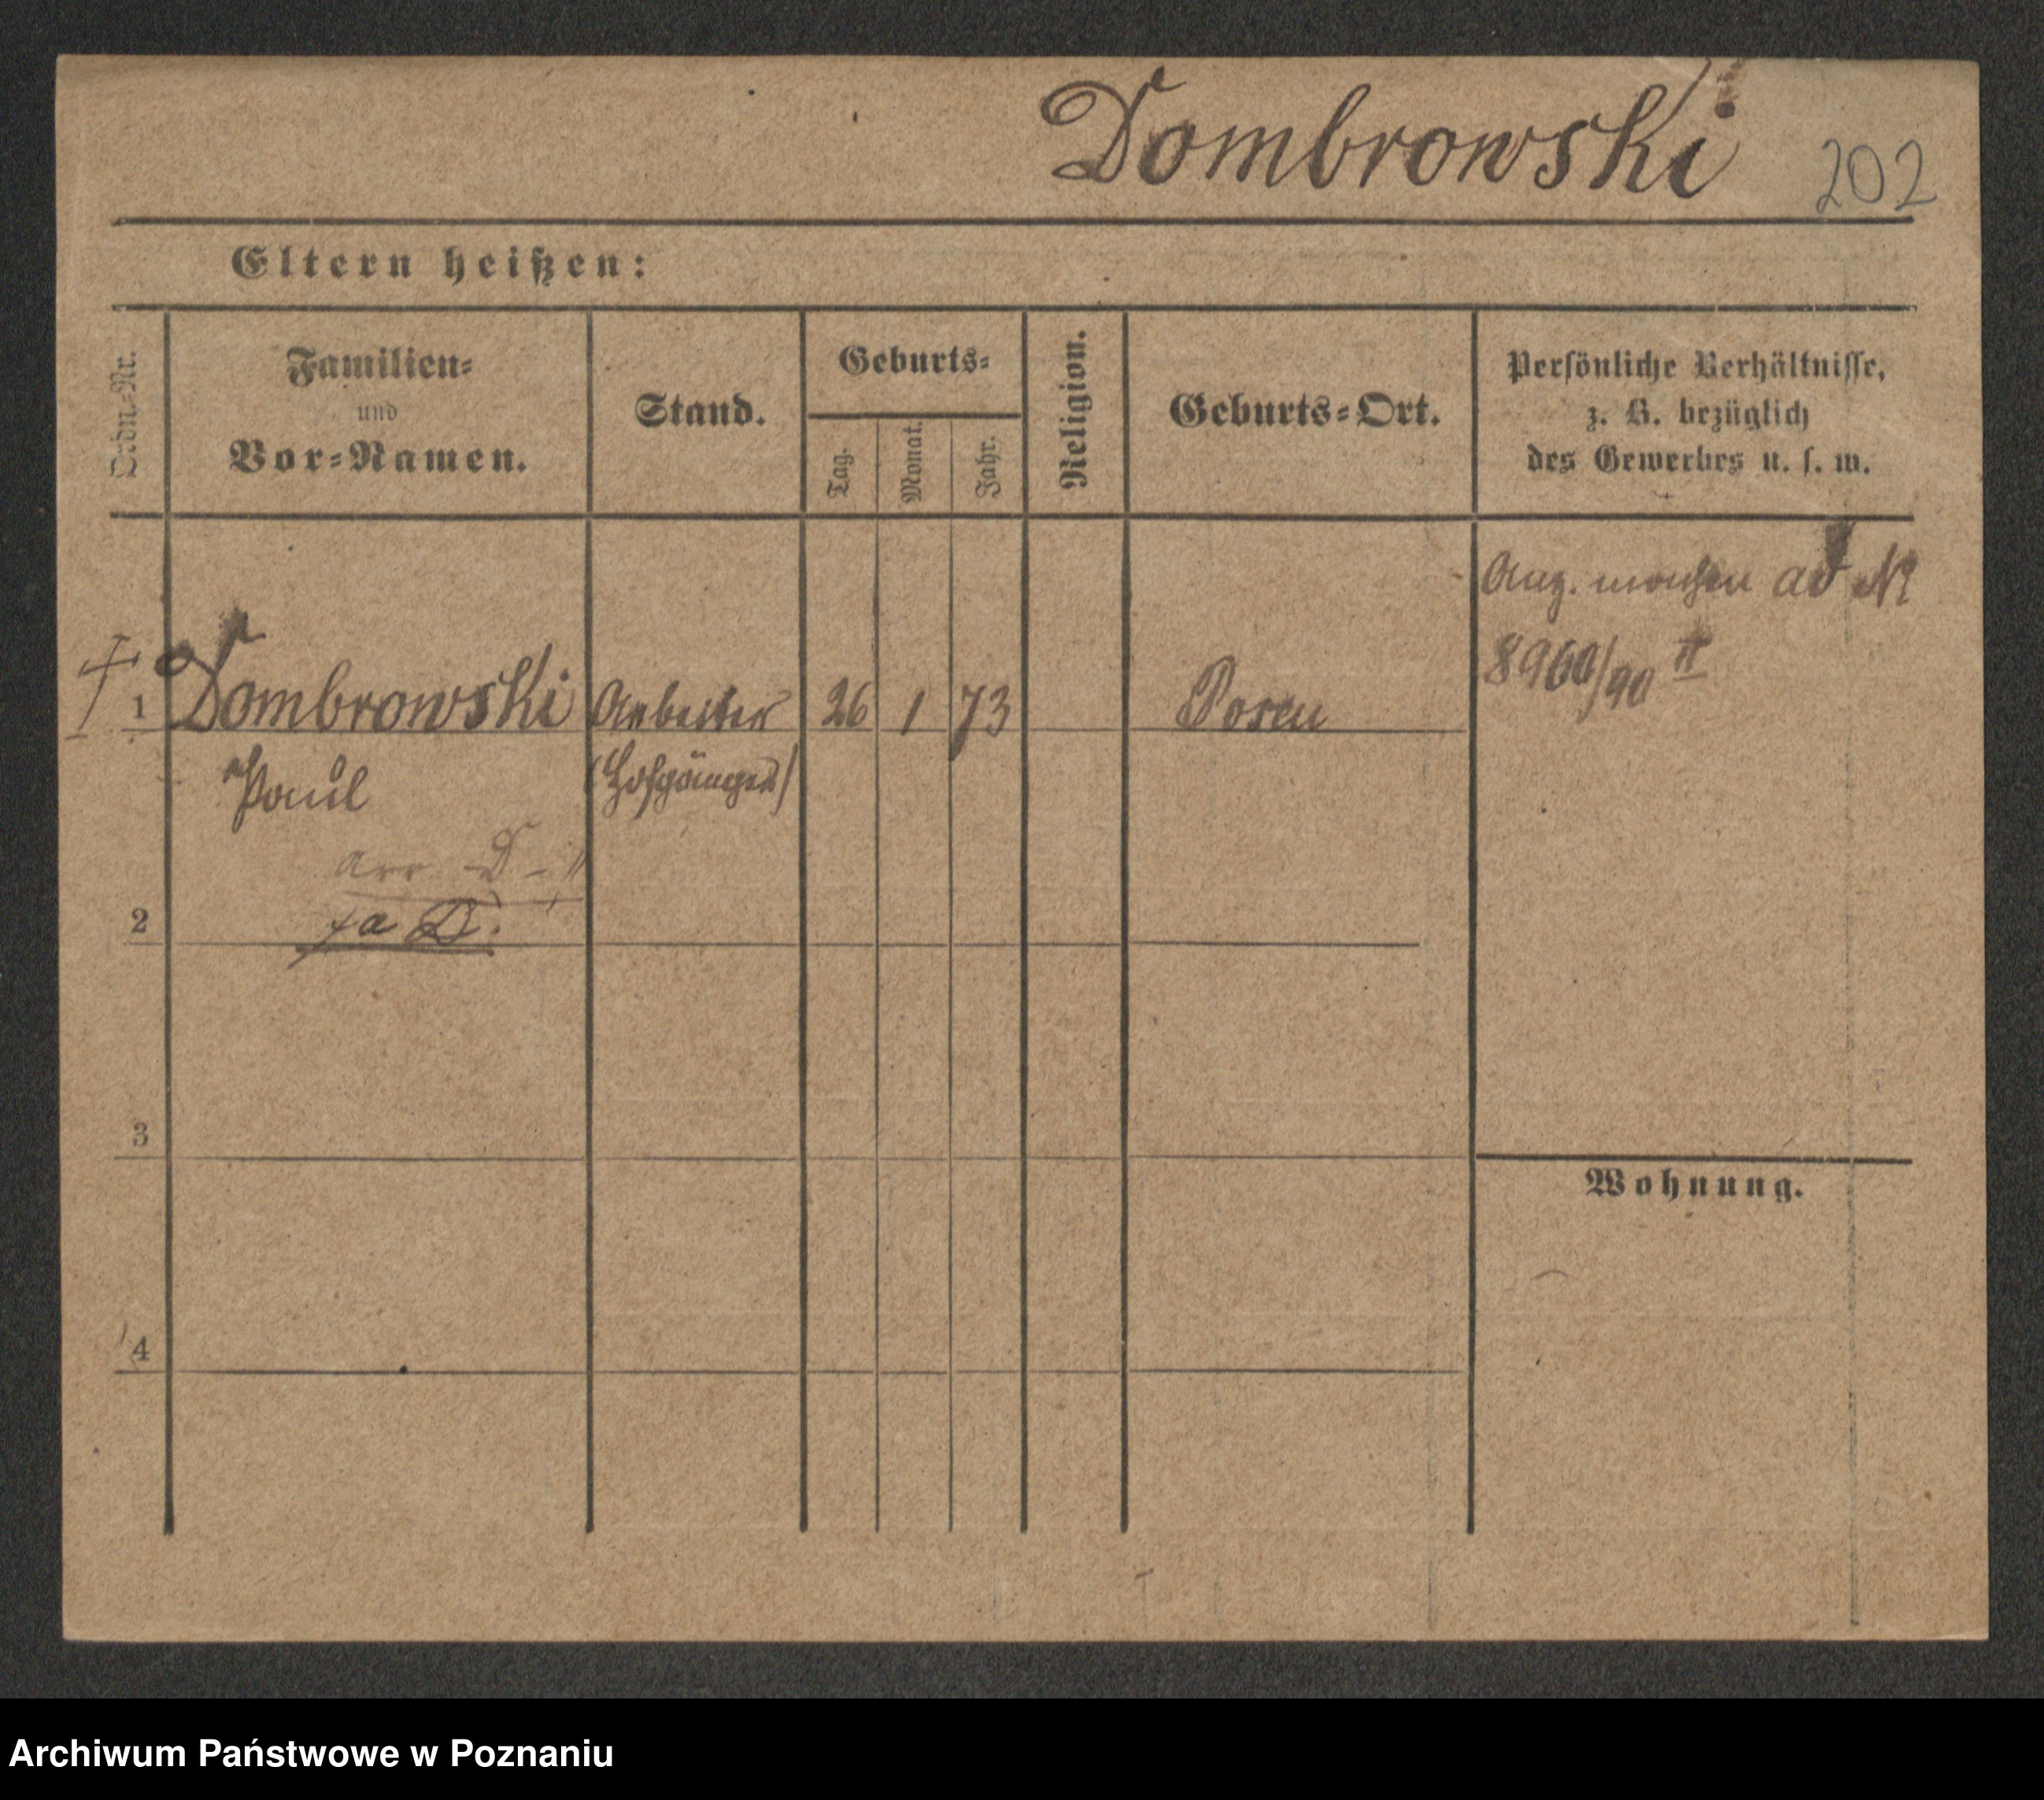 Dombrowski 202
Eltern heißen:
Ordn.-Nr.
Familien-
und
Vor-Namen.
Stand.
Geburts-
Tag.
Monat.
Jahr.
Religion.
Geburts-Ort.
Persönliche Verhältnisse,
z. B. bezüglich
des Gewerbes u. s. w.
1 Dombrowski Arbeiter 26 1 73 Posen
Paul (Hofgänger)
ad №
8960/90 II
2
3
4
Wohnung.
Archiwum Państwowe w Poznaniu